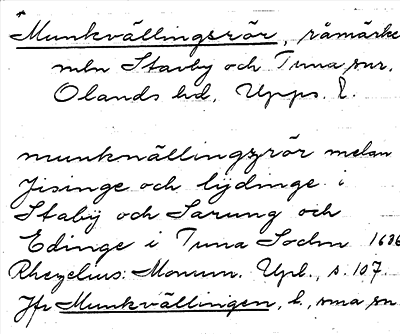 *Munkvällingsrör, råmärke
mln Stavby och Tuna snr.
Olands hd, Upps. l.
munknällingzrör melan
Jisinge och lijdinge i
Stabij och Sarung och
Edinge i Tuna Sochn 1686
Rhezelius: Monum. Upl., s. 107.
Jfr Munkvällingen, b., sma sn